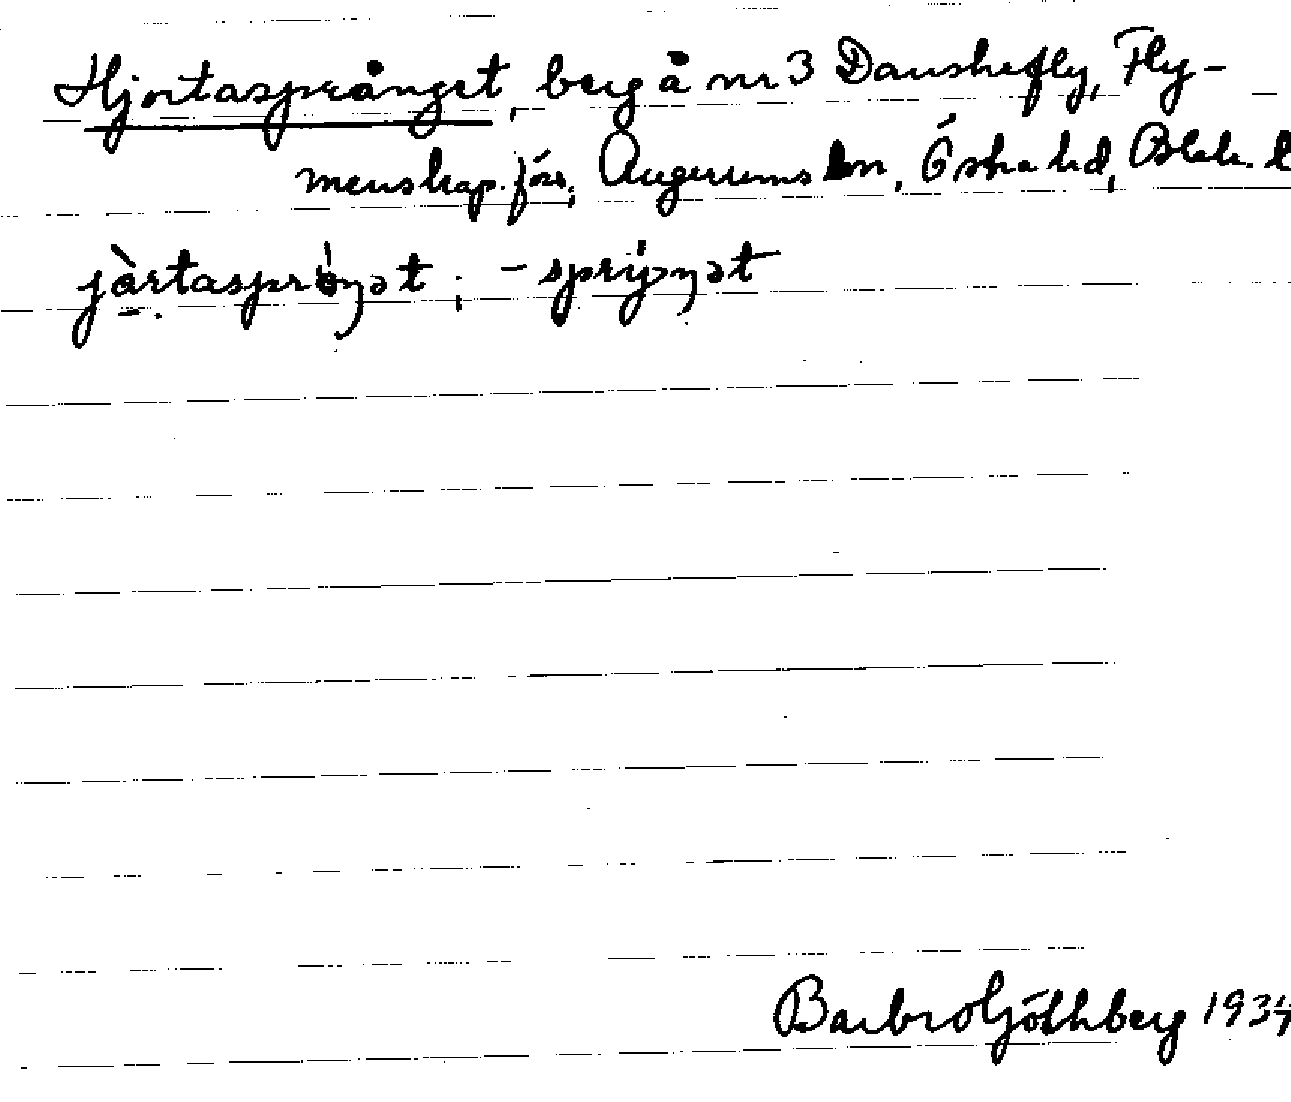 Hjortasprånget, berg å nr 3 Danskefly, Fly-
menskap. förs, Augerums sn, Östra hd, Blek. l
jòrtaspróŋət ; - sprýŋət
Barbro Göthberg 1934